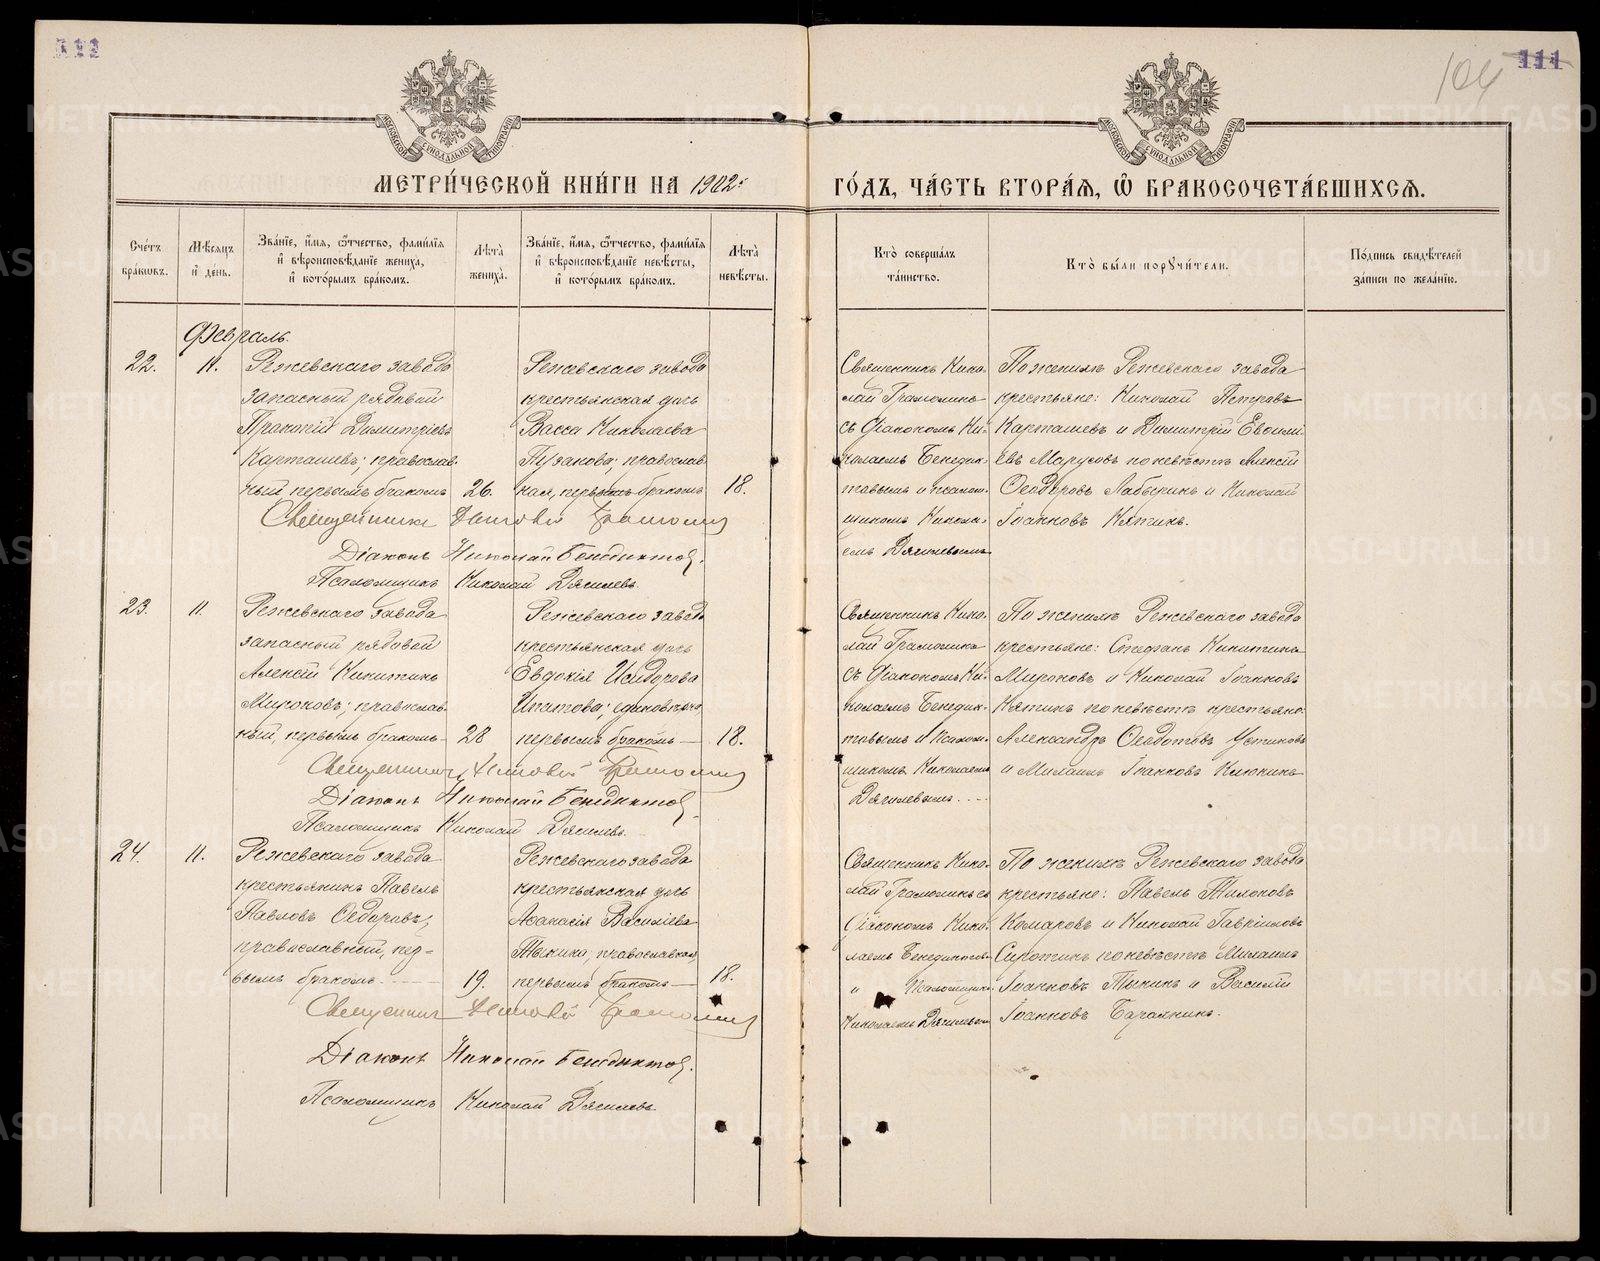 111
104
111
МЕТРИ́ЧЕСКОЙ КНИ́ГИ НА 1902.
ГО́ДЪ, ЧА́СТЬ ВТОРА́Я, Ѡ҆ БРАКОСОЧЕТА́ВШИХСЯ.
Сче́тъ бра́ковъ.
Мѣ́сяцъ и҆ де́нь.
Зва́нїе, и҆́мя, ѻ҆́тчество, фами́лїя и҆ вѣроисповѣ́данїе жениха̀, и҆ кото́рымъ бра́комъ.
Лѣта̀ жениха̀.
Зва́нїе, и҆́мя, ѻ҆́тчество, фами́лїя и҆ вѣроисповѣ́данїе невѣ́сты, и҆ кото́рымъ бра́комъ.
Лѣта̀ невѣ́сты.
Кто̀ соверша́лъ та́инство.
Кто̀ бы́ли порꙋчи́тели.
По́дпись свидѣ́телей за́писи по жела́нїю.
Февраль.
22.
11.
Режевскаго завода
запасный рядовой
Прокопій Димитріевъ
Карташевъ; православ-
ный, первымъ бракомъ
26.
Режевскаго завода
крестьянская дочь
Васса Николаева
Пузанова; православ-
ная, первымъ бракомъ
18.
Священникъ Нико-
лай Грамолинъ
съ діакономъ Ни-
колаемъ Бенедик-
товымъ и псалом-
щикомъ Никола-
емъ Дягилевымъ
По женихѣ Режевскаго завода
крестьяне: Николай Петровъ
Карташевъ и Димитрій Евѳимі-
евъ Марусовъ по невѣстѣ Алексій
Ѳеодоровъ Лабыринъ и Николай
Іоанновъ Кятинъ.
Священникъ Николай Грамолинъ
Діаконъ Николай Бенедиктовъ.
Псаломщикъ Николай Дягилевъ.
23.
11.
Режевскаго завода
запасный рядовой
Алексій Никитинъ
Мироновъ; православ-
ный, первымъ бракомъ
28
Режевскаго завода
крестьянская дочь
Евдокія Исидорова
Ипатова; единовѣрч.
первымъ бракомъ
18.
Священникъ Нико-
лай Грамолинъ
съ діакономъ Ни-
колаемъ Бенедик-
товымъ и псалом-
щикомъ Николаемъ
Дягилевымъ.
По женихѣ Режевскаго завода
крестьяне: Стефанъ Никитинъ
Мироновъ и Николай Іоанновъ
Кятинъ по невѣстѣ крестьяне:
Александръ Ѳедотовъ Устиновъ
и Михаилъ Іоанновъ Клюкинъ
Священникъ Николай Грамолинъ
Діаконъ Николай Бенедиктовъ.
Псаломщикъ Николай Дягилевъ.
24.
11.
Режевскаго завода
крестьянинъ Павелъ
Павловъ Ѳедоровъ;
православный, пер-
вымъ бракомъ
19.
Режевскаго завода
крестьянская дочь
Аѳанасія Василіева
Тыкина; православная,
первымъ бракомъ
18.
Священникъ Нико-
лай Грамолинъ съ
діакономъ Нико-
лаемъ Бенедиктов.
и Псаломщик.
Николаемъ Дягилевым
По женихѣ Режевскаго завода
крестьяне: Павелъ Тихоновъ
Комаровъ и Николай Гавріиловъ
Сиротинъ по невѣстѣ Михаилъ
Іоанновъ Тыкинъ и Василій
Іоанновъ
Священникъ Николай Грамолинъ
Діаконъ Николай Бенедиктовъ.
Псаломщикъ Николай Дягилевъ.